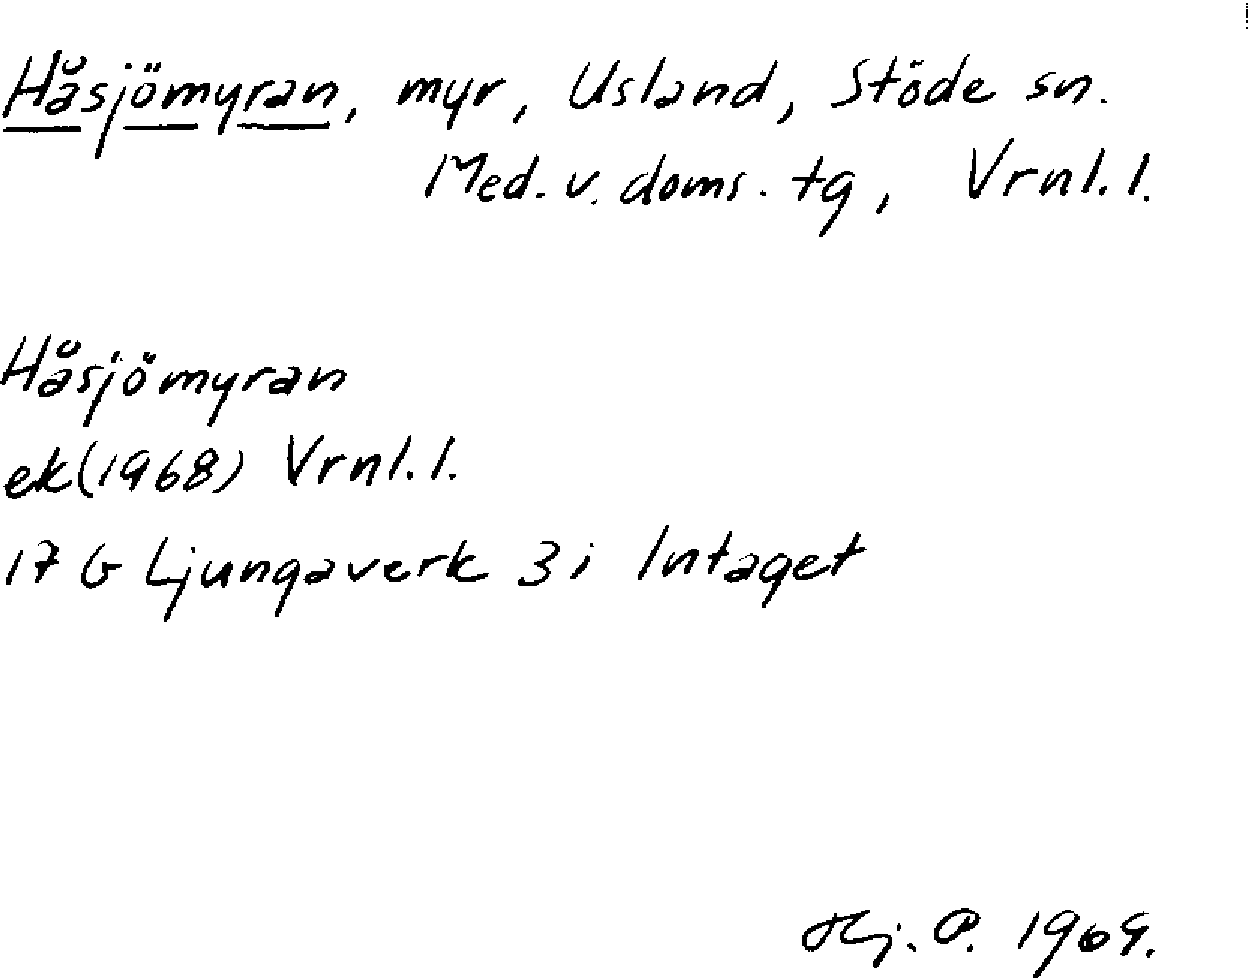 Håsjömyran, myr, Usland, Stöde sn.
Med. v. doms. tg, Vrnl. l.
Håsjömyran
ek (1968) Vrnl. l.
17 G Ljungaverk 3 i Intaget
Hj. P. 1969.